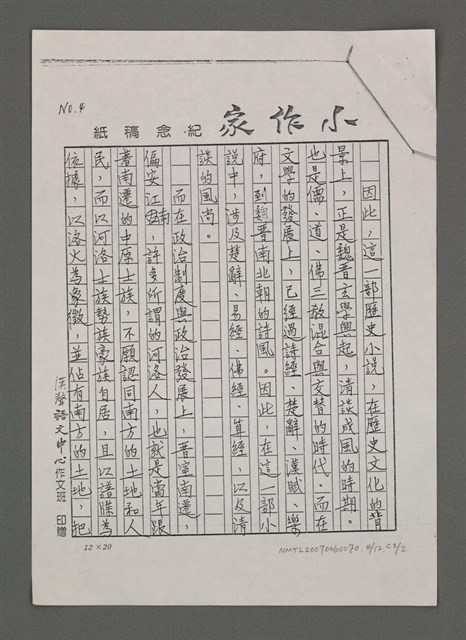 No.4
小作家
紀念稿紙
因此，這一部歷史小說，在歷史文化的背
景上，正是魏晉玄學興起，清談成風的時期。
也是儒、道、佛三教混合與交替的時代。而在
文學的發展上，已經過詩經、楚辭、漢賦、樂
府，到魏晉南北朝的詩風。因此，在這一部小
說中，涉及楚辭、易經、佛經、算經，以及清
談的風尚。
而在政治制度與政治發展上，晉室南遷，
偏安江南，許多所謂的河洛人，也就是當年跟
著南遷的中原士族，不願認同南方的土地和人
民，而以河洛士族勢族豪族自居，且以譜牒為
依據，以洛火為象徵，並佔有南方的土地，把
漢聲語文中心作文班 印贈
12×20
NMTL20070060070. 4/12. C2/2